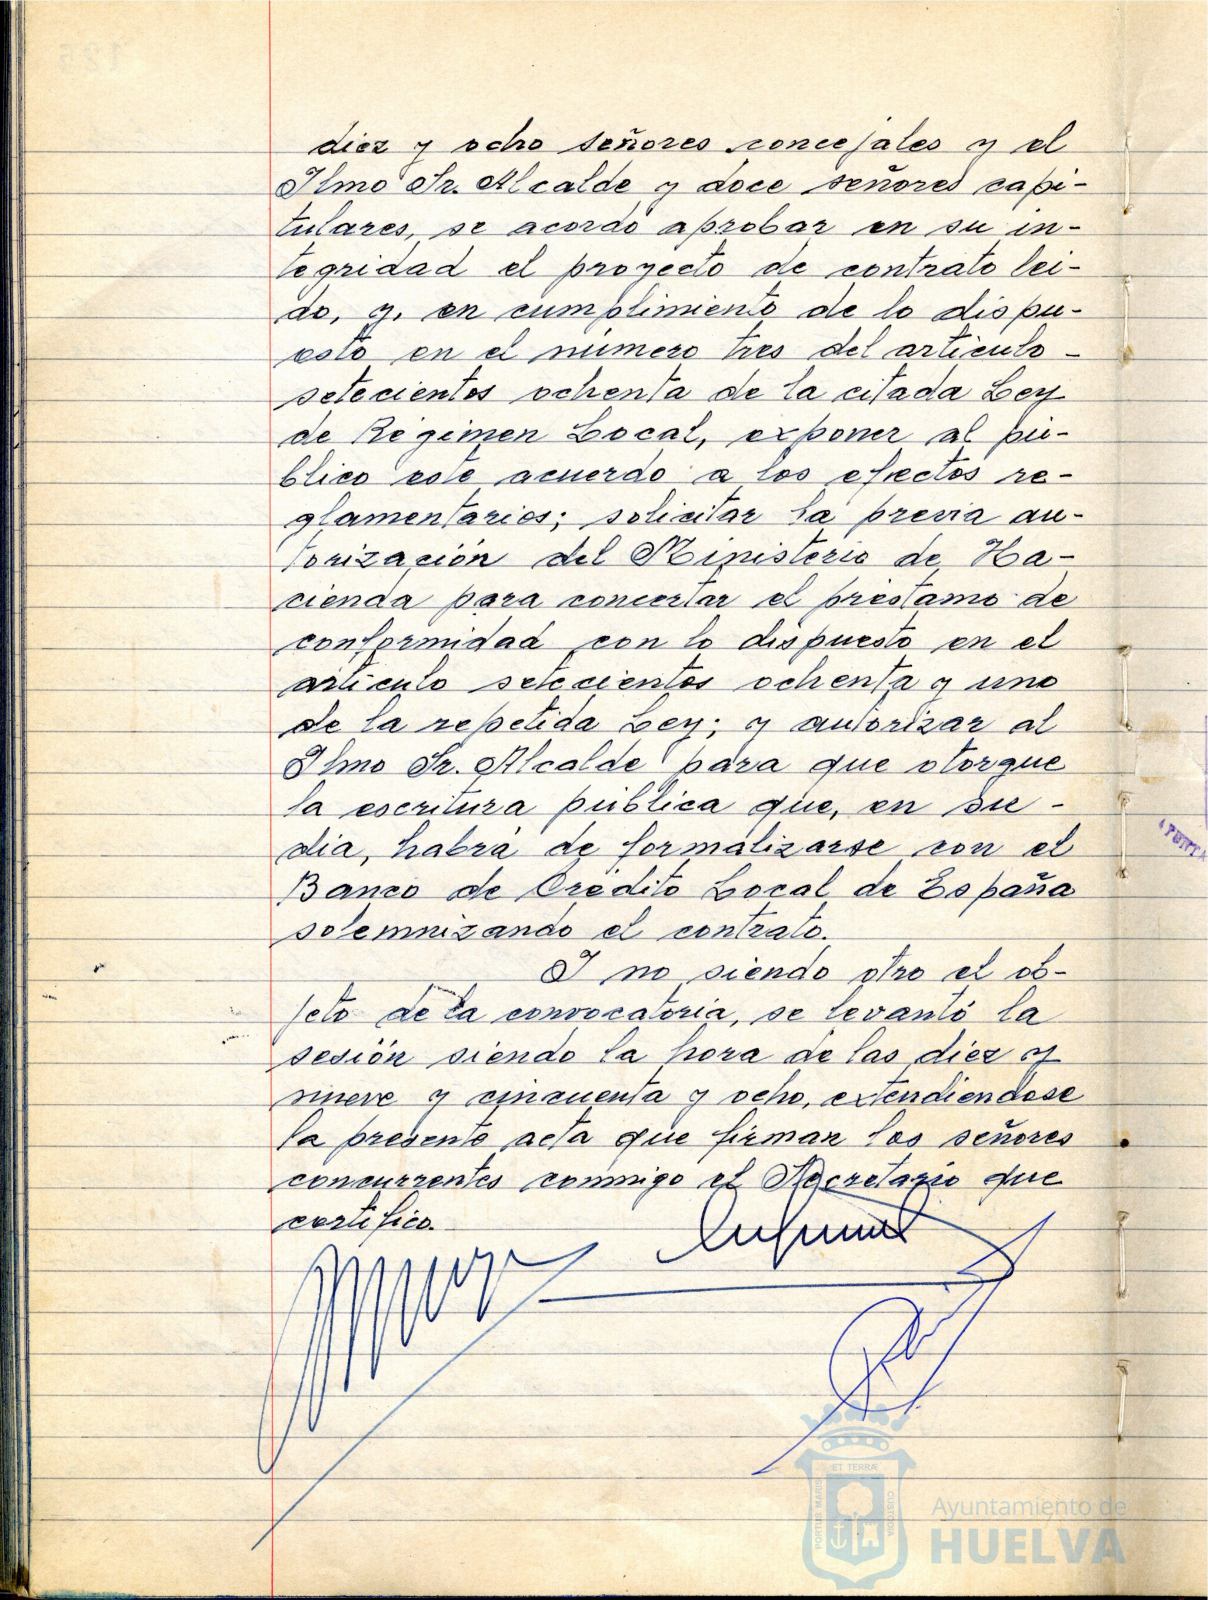 diez y ocho señores concejales y el
Ilmo Sr. Alcalde y doce señores capi-
tulares, se acordó aprobar en su in-
tegridad el proyecto de contrato lei-
do, y, en cumplimiento de lo dispu-
esto en el número tres del artículo -
setecientos ochenta de la citada Ley
de Régimen Local, exponer al pú-
blico este acuerdo a los efectos re-
glamentarios; solicitar la previa au-
torización del Ministerio de Ha-
cienda para concertar el préstamo de
conformidad con lo dispuesto en el
artículo setecientos ochenta y uno
de la repetida Ley; y autorizar al
Ilmo Sr. Alcalde para que otorgue
la escritura pública que, en su -
día, habrá de formalizarse con el
Banco de Crédito Local de España
solemnizando el contrato.
Y no siendo otro el ob-
jeto de la convocatoria, se levantó la
sesión siendo la hora de las diez y
nueve y cincuenta y ocho, extendiéndose
la presente acta que firman los señores
concurrentes conmigo el Secretario que
certifico.
ET TERRÆ
PORTUS MARIS
CUSTODIA
Ayuntamiento de
HUELVA